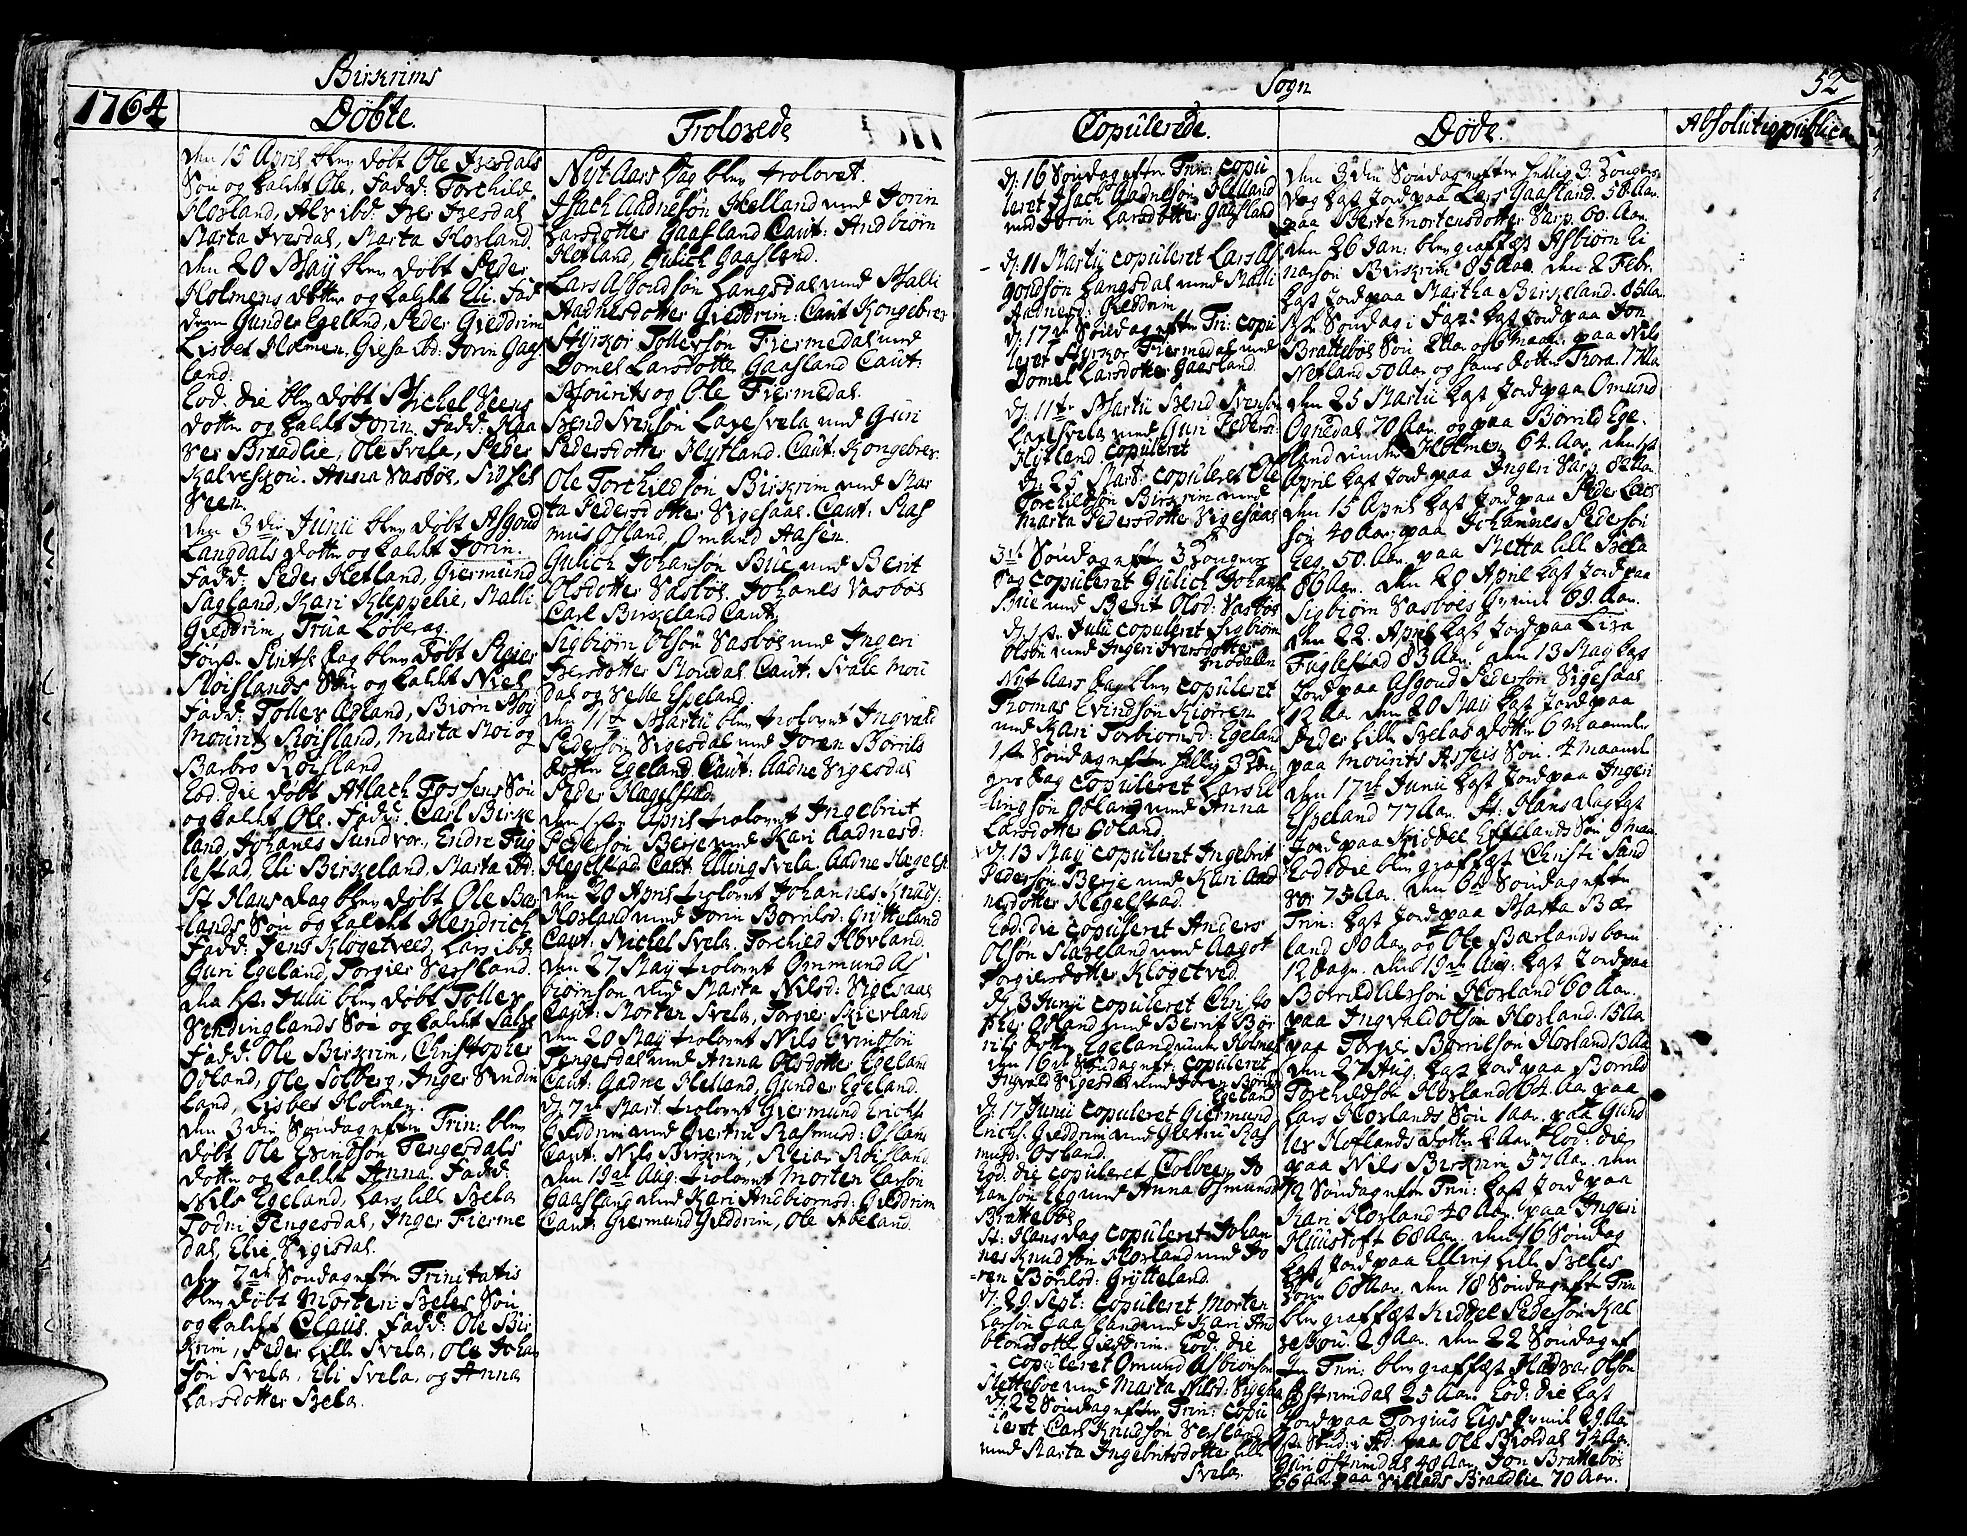 Birkrims
Sogn
52
1764
Døbte.
den 15 April blev døbt Ole Ivesdals
Søn og kaldt Ole, Fadd: Torchild
Hovland, Alv ibd: Iver Ivesdal
Marta Ivesdal, Marta Hovland.
den 20 May blev døbt Peder
Holmens dotter og kaldt Eli. Fad
drere Gunder Egeland, Peder Gieddrim
Lisbet Holmen, Giesa ibd: Jorin Gaas
land.
Eod: die blev døbt Michel Veens
dotter og kaldt Jorin. Fadd: Haa
ver Braadlie, Ole Svela, Peder
Kalveskou. Anna Vasbøe, Sidsel
Veen.
den 3die Junii blev døbt Asgoud
Langdals dotter og kaldt Jorin.
Fadd: Peder Hetland, Giermund
Sagland, Kari Kleppelie, Malli
Gieddrim, Trua Løberag.
Første Pintse dag blev døbt Reier
Røislands Søn og kaldt Niels
Fadd: Tollev Øgland, Biørn Røy
Mourits Røisland, Marta Roi og
Barbro Røisland
Eod: die døbt Atlach Tostens Søn
og kaldt Ole. Fadd: Carl Birke
land, Johanes Sundvor, Endre Fug
lestad, Eli Birkeland, Marta ibd:
St Hans dag blev døbt Ole Bær
lands Søn og kaldt Hendrich
Fadd: Jens Kløgetveed, Lars ibd:
Guri Egeland, Torgier Versland.
den 1ste Julii blev døbt Tollev
Vendinglands Søn og kaldt Salve
Fadd: Ole Birkrim, Christopher
Odland, Ole Solberg, Inger Vending
land, Lisbet Holmen.
den 3die Søndag efter Trin: blev
døbt Ole Evindsøn Tengesdals
dotter og kaldt Anna. Fadd:
Nils Egeland, Lars lille Svela
Todni Tengesdal, Inger Fierme
dal, Elie Vigisdal.
den 7de Søndag efter Trinitatis
blev døbt Morten Sveles Søn
og kaldt Claus. Fadd: Ole Bir
krim, Peder lille Svela, Ole Johan
søn Svela, Eli Svela, og Anna
Larsdotter Svela.
Trolovede
Nyt Aars dag blev trolovet.
Isach Aadnesøn Helland med Jorin
Larsdotter Gaasland Caut: Andbiørn
Hetland, Gulich Gaasland.
Lars Asgoudsøn Langsdal med Malli
Aadnesdotter Gieddrim: Caut Kongebrev
Styrkor Tollevsøn Fiermedal med
Domel Larsdotter Gaasland Caut:
Mourits og Ole Fiermedal.
Bend Svensøn Laxesvela med Guri
Pedersdotter Hytland. Caut: Kongebrev
Ole Torchildsøn Birkrim med Mar
ta Pedersdotter Vigesaas. Caut: Ras
mus Osland, Omund Aasen.
Gulich Johansøn Bue med Berit
Olsdotter Vasbøe. Johanes Vasbøe
Carl Birkeland Caut.
Sigbiørn Olsøn Vasbøe med Ingeri
Iversdotter Modal Caut: Svale Mou
dal og Velle Espeland
den 11te Martii blev trolovet Ingvald
Pedersøn Vigesdal med Joren Børrils
dotter Egeland. Caut: Aadne Vigesdal
Peder Hægelstad.
den 1ste April trolovet Ingebrict
Pedersøn Berje med Kari Aadnesd:
Hegelstad Caut: Elling Svela. Aadne Hægelst.
den 20 April trolovet Johannes Knuds:
Hovland med Jorin Borrilsd: Grytteland
Caut: Michel Svela. Torchild Hovland.
den 27 May trolovet Ommund As
biørnsøn med Marta Nilsd: Vigesaas
Caut: Morten Svela, Torger Skievland
den 20 May trolovet Nils Evindsøn
Tengesdal med Anna Olsdotter Egeland
Caut: Aadne Helland, Gunder Egeland.
d: 7de Mart: trolovet Giermund Erichs:
Gieddrim med Giertru Rasmusd: Osland
Caut: Nils Birkrim, Reiar Røisland
den 19de Aug: trolovet Morten Larsøn
Gaasland med Kari Andbiornsd: Gieddrim
Caut: Giermund Gieddrim, Ole Abeland
Copulerede.
d: 16 Søndag efter Trin: copu
leret Isach Aadnesøn Helland
med Jorin Larsdotter Gaasland
d: 11 Martii copuleret Lars As
goudsøn Langsdal med Malli
Aadnesd: Gieddrim
d: 17de Søndag efter Tri: copu
leret Styrkor Fiermedal med
Domel Larsdotter Gaasland.
d: 11te Martii Bend Svensøn
Laxesvela med Guri Peders:
Hytland copuleret
d: 25 Mart: copuleret Ole
Torchildsøn Birkrim med
Marta Pedersdotter Vigesaas
3de Søndag efter 3 Kongers
dag copuleret Gulich Johans
Bue med Berit Olsd: Vasbøe
d: 1ste Julii copuleret Sigbiørn
Olsøn med Ingeri Iversdotter
Modalen
Nyt Aars dag blev copuleret
Thomas Evindsøn Kiørren
med Kari Torbiornsd: Egeland
1ste Søndag efter Hellig 3 Kon
gers dag copuleret Lars El
lingsøn Odland med Anna
Larsdotter Odland.
d: 13 May copuleret Ingebrit
Pedersøn Berje med Kari Aad
nesdotter Hegelstad.
Eod: die copuleret Anders
Olsøn Slaxeland med Aagot
Torgiersdotter Kløgetved.
d: 3 Junii copuleret Christo
pher Odland med Berrit Bør
rils dotter Egeland med Holmen
den 16de Søndag eft: copuleret
Ingvald Vigesdal med Joren Børrils
Egeland
d: 17 Junii copuleret Giermund
Erichs: Gieddrim med Giertru Ras
musd: Osland.
Eod: die copuleret Colbeen Jo
hansøn Eeg med Anna Osmunds
Brattebøe
St: Hans dag copuleret Johan
nes Knudsøn Hovland med Jo
ren Børilsd: Grytteland.
d: 29. Sept: copuleret Morten
Larsøn Gaasland med Kari And
biornsdotte Gieddrim. Eod: die
copuleret Omund Asbiørnsøn
Slettebøe med Marta Nilsd: Vigesaa
d: 22 Søndag efter Trin: copu
leret Carl Knudsøn Versland
med Marta Ingebritsdotter lille
Svela.
Døde.
den 3die Søndag efter hellig 3 Kongers
dag kast Jord paa Lars Gaasland. 58 Aar.
paa Berte Mortensdotter Varp. 60. Aar.
den 26 Jan: blev graffæst Asbiørn Ei
narsøn Birkrim 85 Aar. den 2 Febr.
kast Jord paa Martha Birkeland. 85 Aar
1ste Søndag i Fast: kast Jord paa Jon
Brattebøes Søn 2 Aar og 6 maan: paa Nils
Netland 50 Aar og hans dotter Thora. 17 Aar
den 25 Martii kast Jord paa Omund
Ognedal 70 Aar. og paa Borrild Ege
land Holmen 64. Aar. den 1ste
April kast Jord paa Ingeri Varp. 82 Aar.
den 15 April kast Jord paa Peder Lars
søn 40 Aar: paa Johannes Pedersøn
Eeg. 50. Aar. paa Metta lille Svela
86 Aar. den 20 April kast Jord paa
Sigbiørn Vasbøes Qvinde 69. Aar.
den 22. April kast Jord paa Liva
Fuglestad 83 Aar. den 13 May kast
Jord paa Asgoud Pedersøn Vigesaas
12 Aar den 20 May kast Jord paa
Peder lille Svelas dotter 6 maaneder
paa Mourits Asseis Søn 4 maaned
den 17de Junii kast Jord paa Ingeri
Espeland 77 Aar. St: Hans dag kast
Jord paa Kiddel Espelands Søn 9 maa.
Eod die blev graffæst Christi Sand
vor 75 Aar. den 6te Søndag efter
Trin: kast Jord paa Marta Bær
land 80 Aar og Ole Bærlands barn
12 dage. den 19de Aug: kast Jord paa
Børrild Alvsøn Hovland 60 Aar.
paa Ingvald Olsøn Hovland. 15 Aar
paa Torger Børrilsøn Hovland 13 Aar
den 27 Aug. kast Jord paa Børrild
Torchildsøn Hovland 64. Aar paa
Lars Hovlands Søn 1 aar. paa Gund
lev Hoflands dotter 2 Aar. Eod: die
paa Nils Birkrim 57 Aar. den
12 Søndag efter Trin: kast Jord paa
Kari Hovland 40 Aar. paa Ingeri
Huustoft 68 Aar. den 16 Søndag
kast Jord paa Elling lille Sveles
Kone 60 Aar. den 18 Søndag efter Trin
blev graffæst Kiddel Pedersøn Kal
veskou. 29 Aar. den 22 Søndag ef
ter Trin: blev graffæst Hadvar Olsøn
Østrimdal 25 Aar. Eod: die kast
Jord paa Torgius Eigs Qvinde 29. Aar
1ste Sønd: i Ad: paa Ole Biordal 74 Aar.
Guri Østrimdal 48 Aar. Jon Brattebøe
66 Aar. paa Villads Braadlie 70 Aar.
Absolutio publica